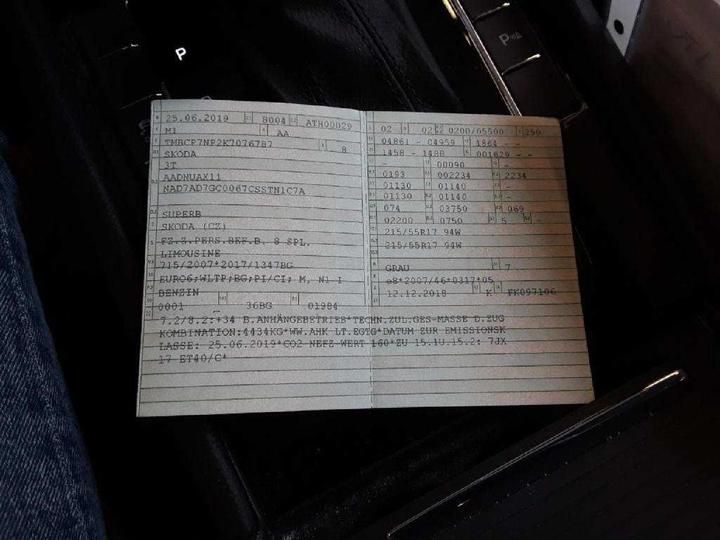 P
P
25.06.2019 8004 ATH00029
M1 AA
TMBCP7NP2K7076787 8
SKODA
3T
AADNUAX11
NAD7AD7GC0067CSSTN1C7A
SUPERB
SKODA (CZ)
FZ.Z.PERS.BEF.B. 8 SPL.
LIMOUSINE
715/2007*2017/1347BG
EURO6;WLTP;BG;PI/CI; M, N1 I
BENZIN
0001 36BG 01984
02 02 0200/05500 250
04861 - 04959 1864 - -
1458 - 1488 001629 - -
- 00090 -
0193 002234 2234
01130 01140 -
01130 01140 -
074 03750 069
02200 0750 5 -
215/55R17 94W
215/55R17 94W
GRAU 7
e8*2007/46*0317*05
12.12.2018 K FK097106
7.2/8.2:+34 B.ANHÄNGEBETRIEB*TECHN.ZUL.GES-MASSE D.ZUG
KOMBINATION:4434KG*WW.AHK LT.EGTG*DATUM ZUR EMISSIONSK
LASSE: 25.06.2019*CO2 NEFZ-WERT 160*ZU 15.1U.15.2: 7JX
17 ET40/C*